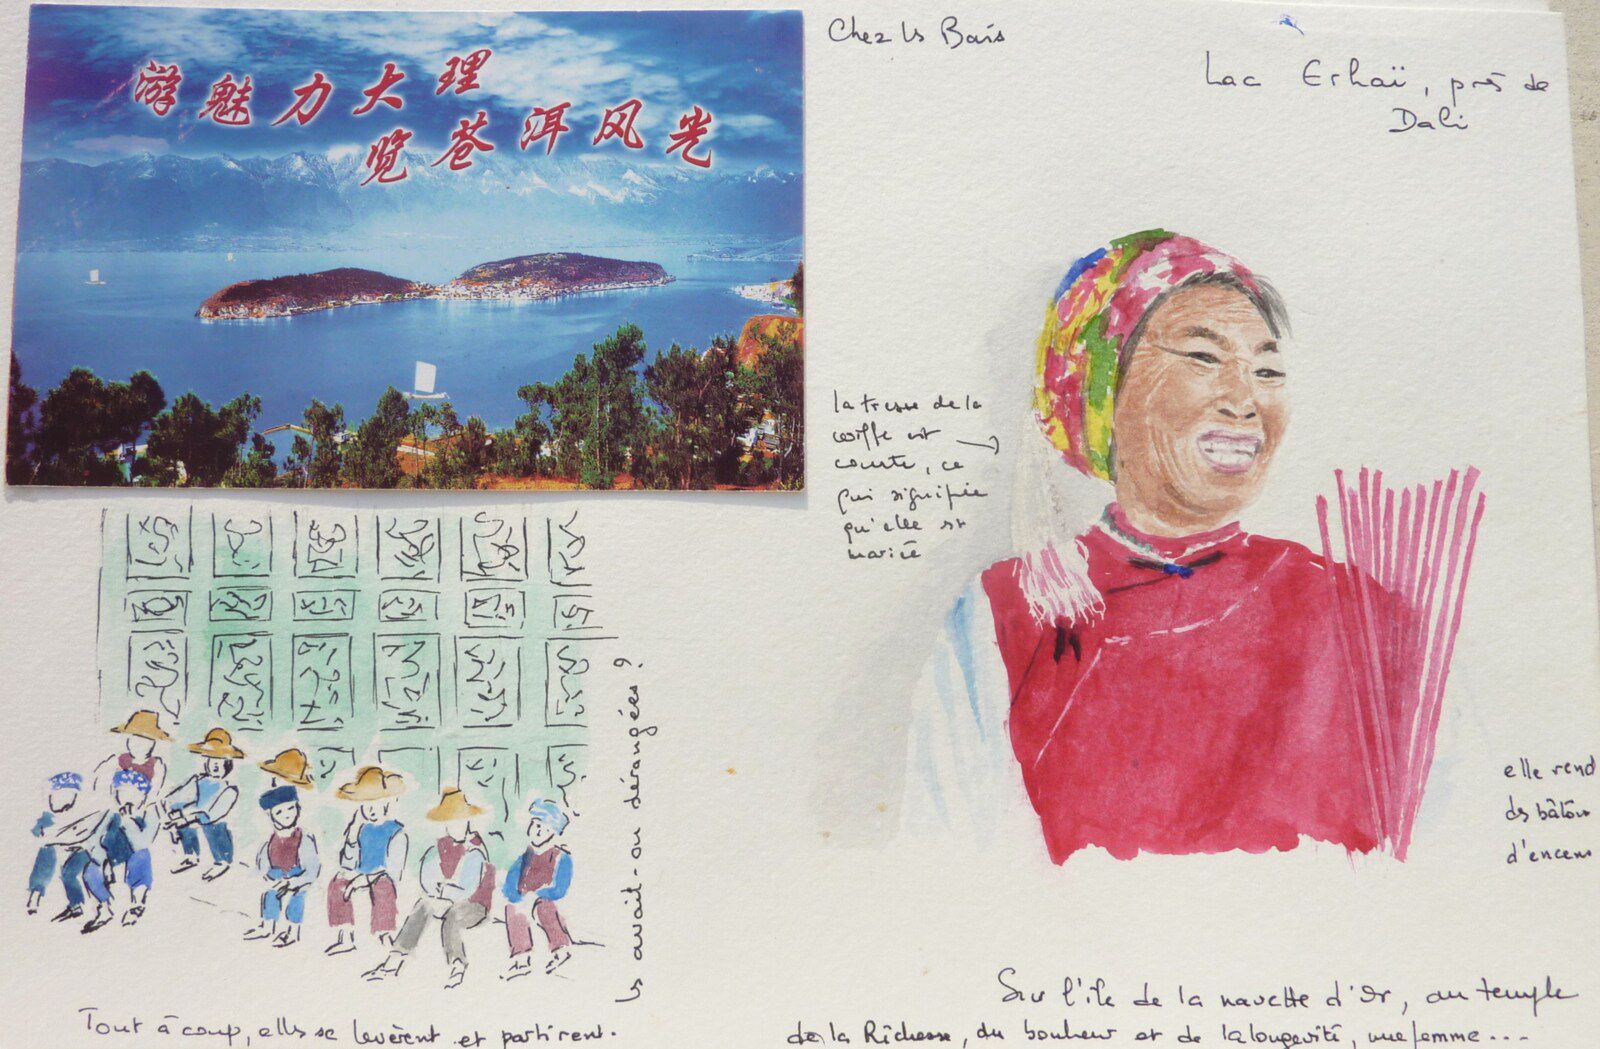 游魅力大理
览苍洱风光
Chez ls Bais
Lac Erhaï, près de
Dali
la tresse de la
coiffe est
courte, ce
qui signifie
qu'elle est
mariée
elle vend
ds bâtons
d'encens
ls avait-on dérangées?
Tout à coup, elles se levèrent et partirent.
Sur l'île de la navette d'Or, au temple
de la Richesse, du bonheur et de la longévité, une femme...